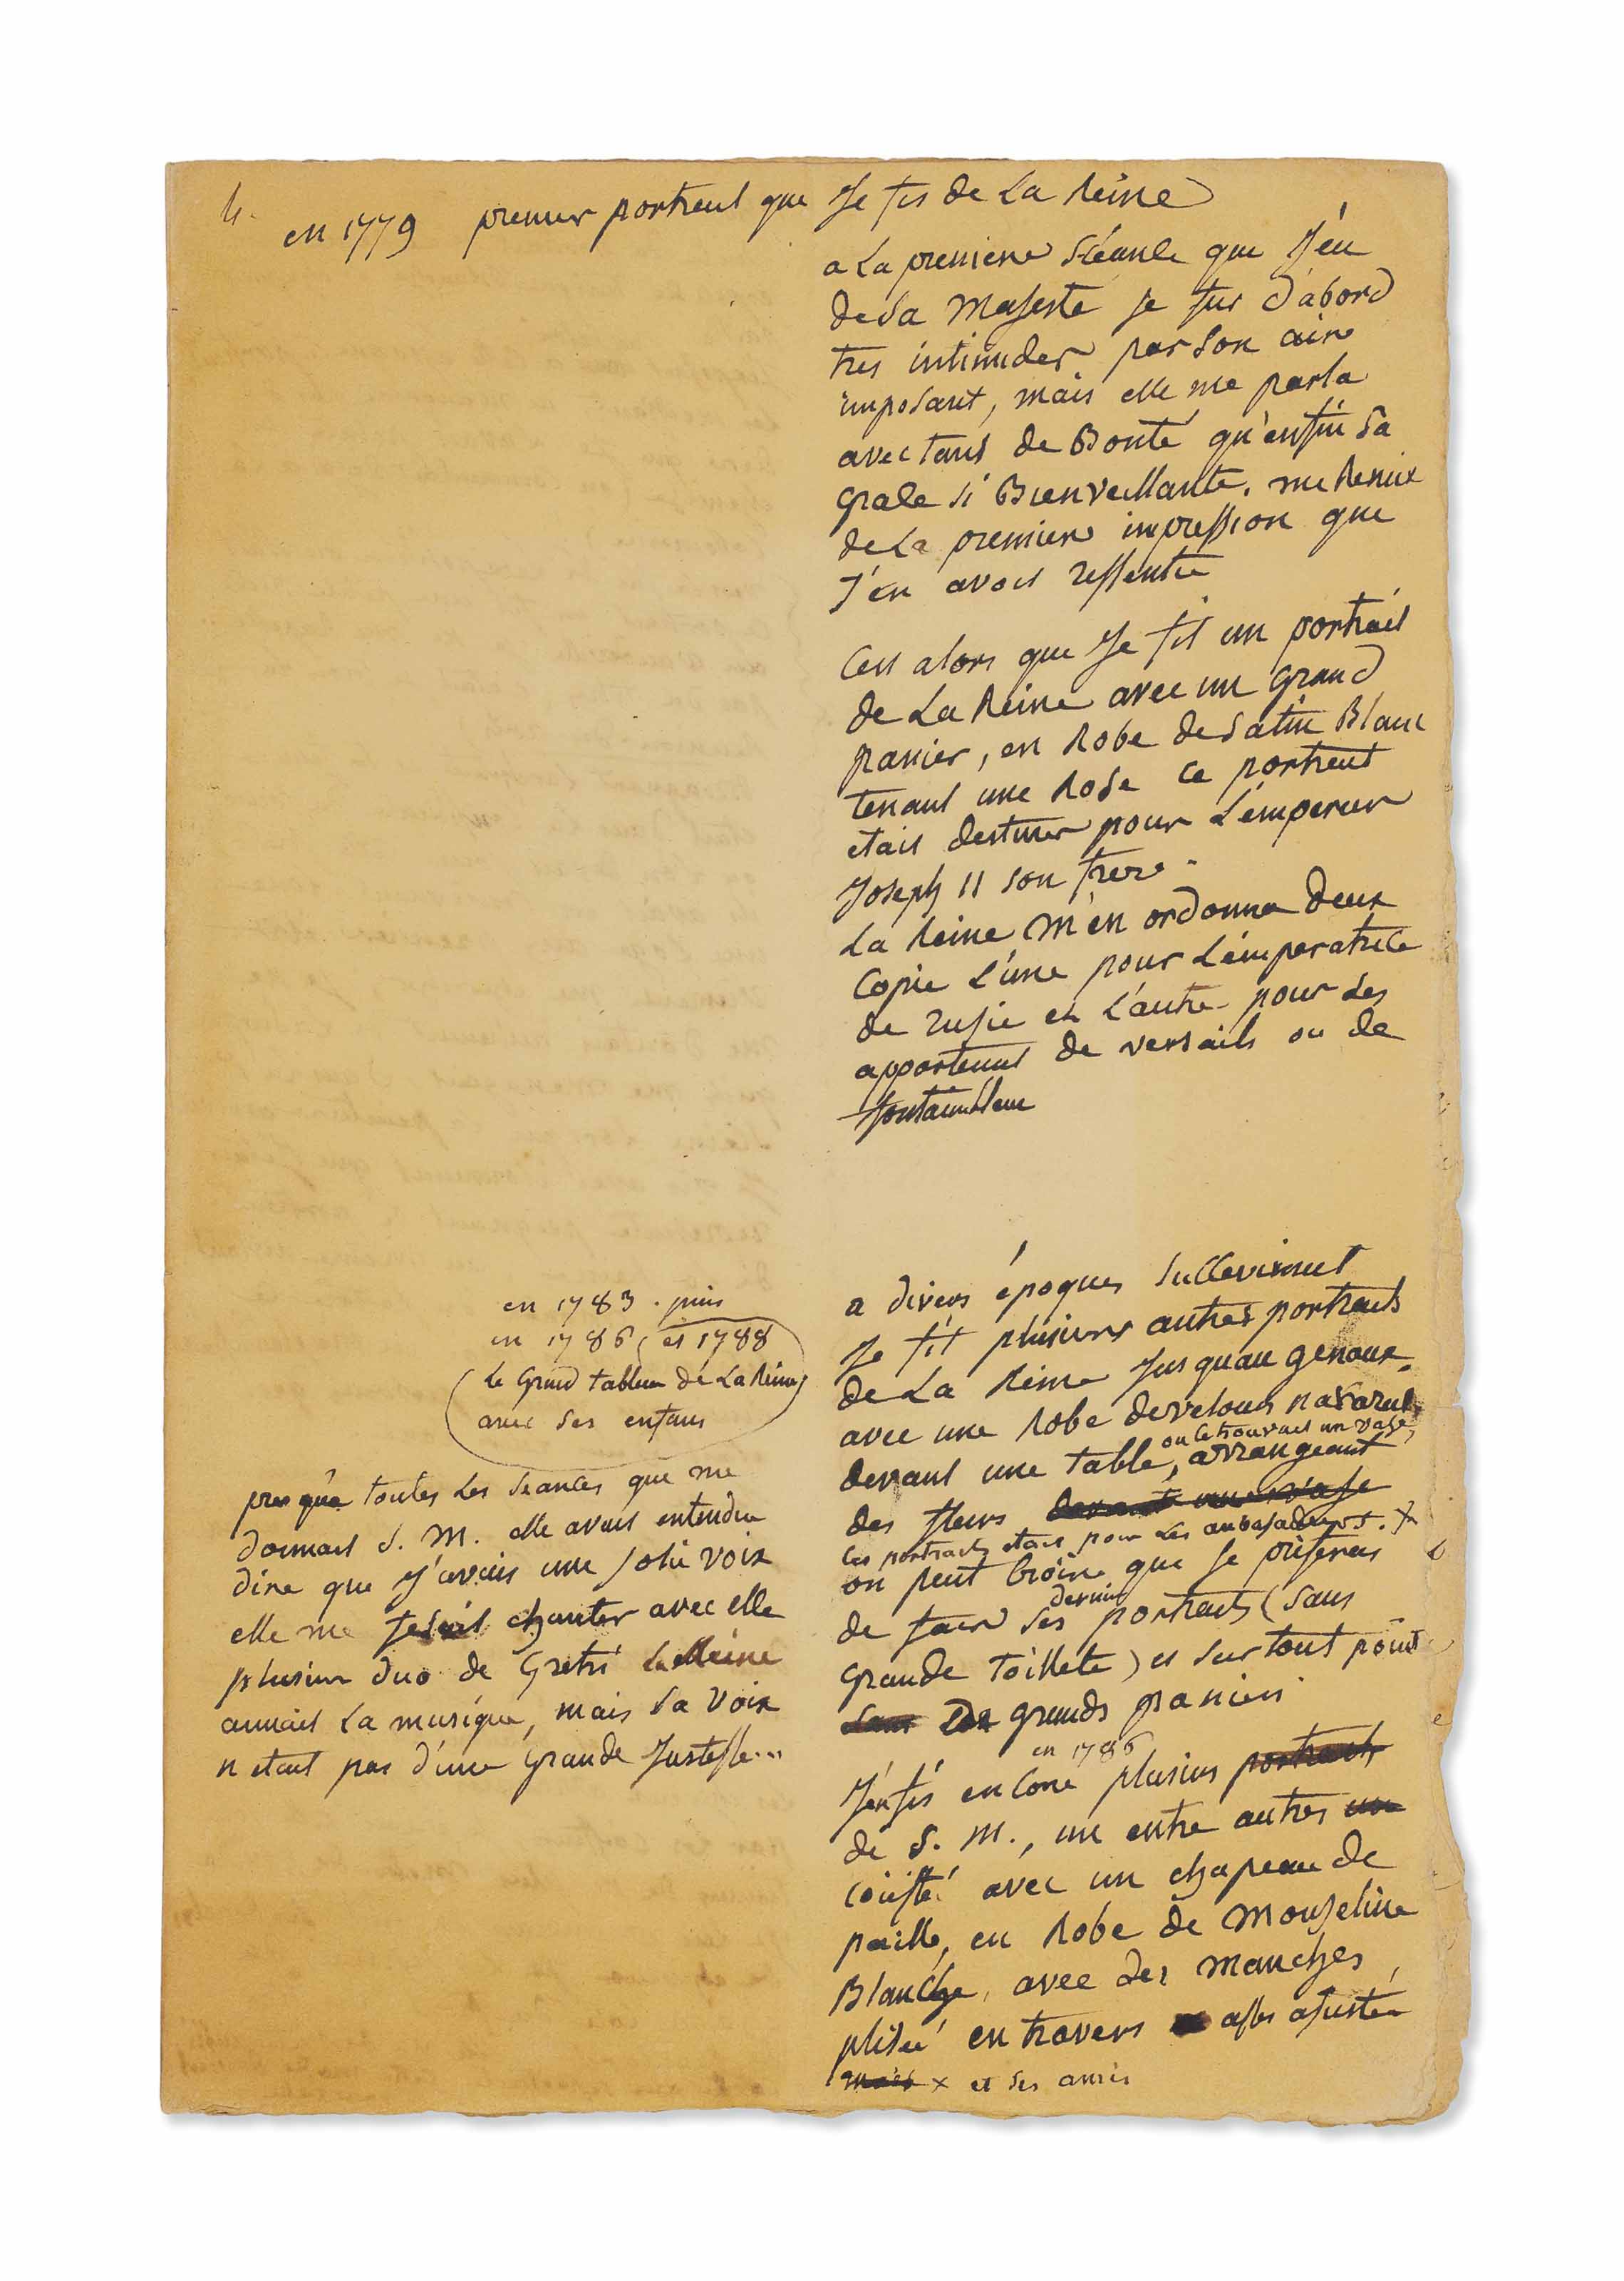 4.
en 1779 premier portrait que Je fis de La Reine
a La premiere Séance que J'eu
de Sa Majesté je fus d'abord
tres intimider par Son air
imposant, mais elle me parla
avec tant de Bonté qu'enfin Sa
Grace si Bienveillante. me Remit
de La premiere impression que
J'en avois ressentie
C'est alors que Je fit un portrait
de La Reine avec un Grand
panier, en Robe de Satin Blanc
tenant une Rose ce portrait
etait destiner pour L'empereur
Joseph II son frere.
La Reine M'en ordonna Deux
Copie L'une pour L'imperatrice
de rusie et L'autre pour Les
appartement de versails ou de
fontainbleau
a divers époques Successivement
Je fit plusieurs autres portraits
de La Reine Jusquau genoux.
avec une Robe develours
ou ce trouvait un vase,
devant une table, arrangeant
des fleurs devant un vase
Ces portraits etait pour Les anbasadeurs. x
on peut Croire que Je préferais
dernier
de fair Ses portraits (Sans
Grande toillete) et Sur tout point
Sans De grands paniers
en 1786
J'en fis encore plusieurs portraits
de S. M., un entre autres un
coiffé avec un chapeau de
paille, en Robe de Mouseline
Blanche, avec des manches,
plisée en travers asses ajustée
mais x et ses amies
en 1783. puis
en 1786, et 1788
(Le Grand tableau de La Reine)
avec Ses enfans
presque toutes Les Séances que me
donnait S. M. elle avait entendue
dire que J'avais une Jolie voix
elle me fesait chanter avec elle
plusieur duo de Gretri La Reine
aimait La musique, mais Sa Voix
n etait pas d'une Grande Justesse...